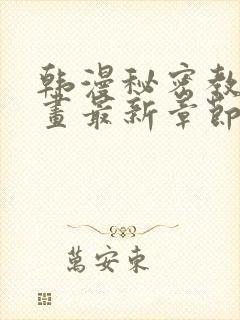 韩漫秘密教
畫最新章節
萬安東